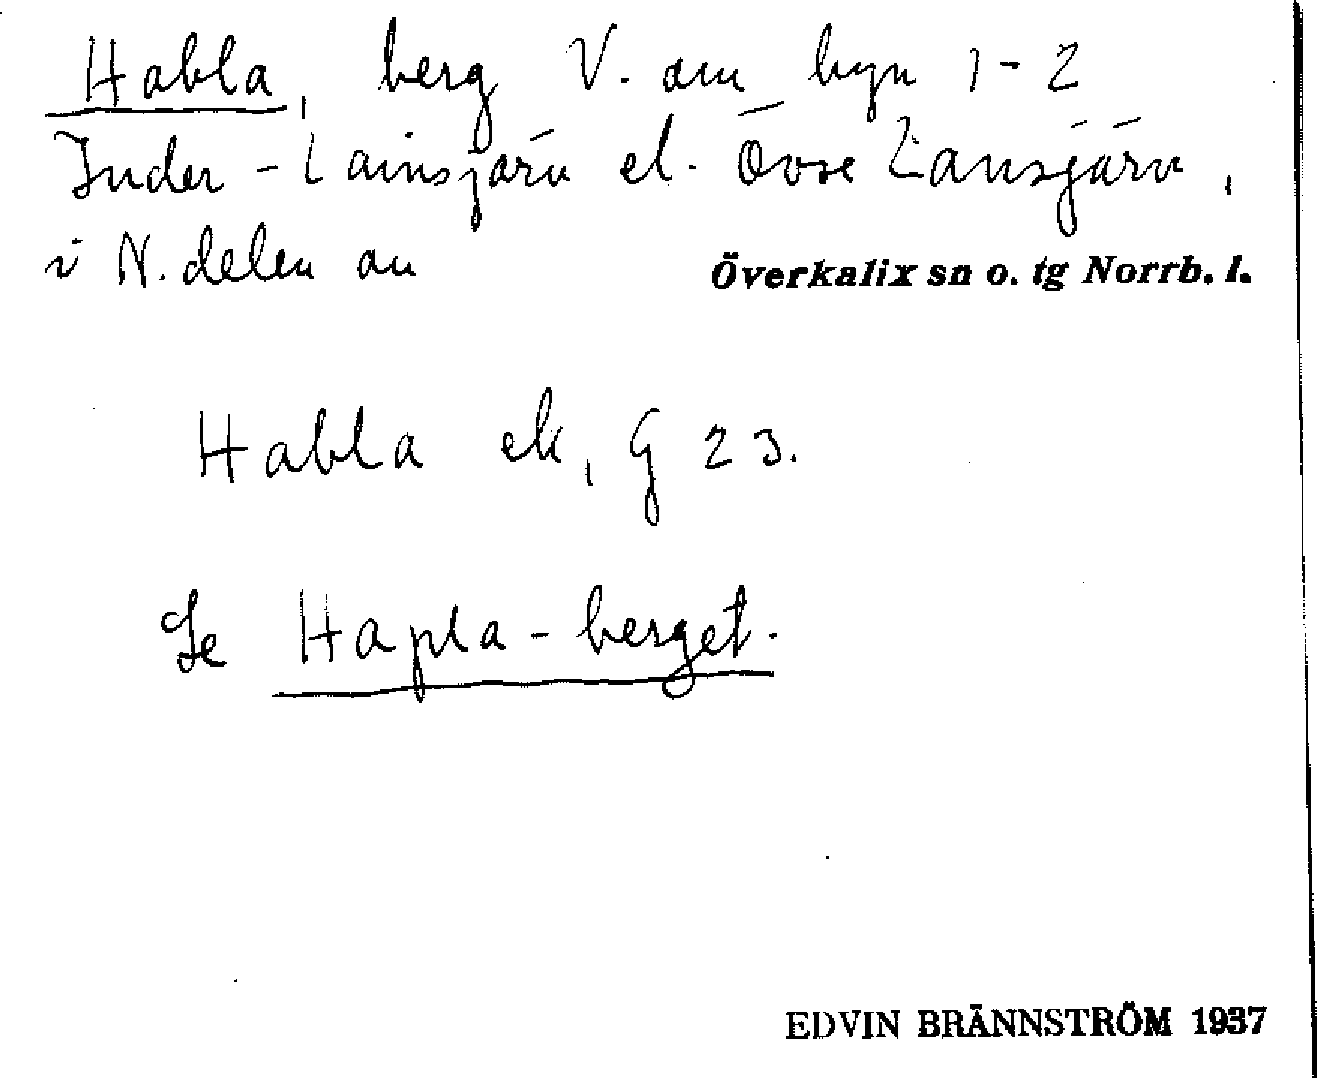 Habla, berg V. om byn 1-2
Inder-Lainsjärv el. Övre Lansjärv,
i N. delen av
Överkalix sn o. tg Norrb. l.
Habla ek, G 23.
Se Hapla-berget.
EDVIN BRÄNNSTRÖM 1937